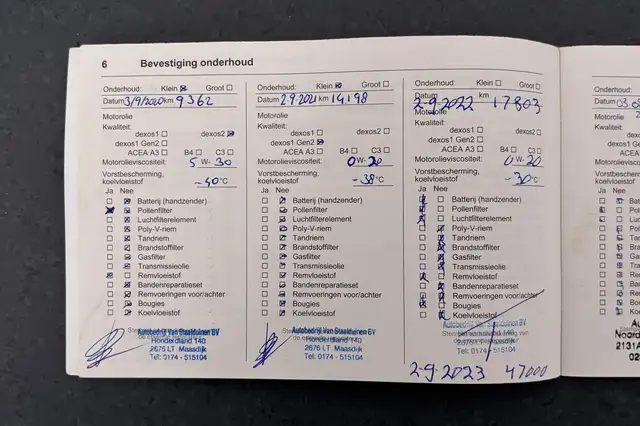 6 Bevestiging onderhoud
Onderhoud: Klein Groot
Datum 3/9/2020 km 9362
Motorolie
Kwaliteit:
dexos1 dexos2
dexos1 Gen2
ACEA A3 B4 C3
Motorolieviscositeit:
5 W- 30
Vorstbescherming,
koelvloeistof
-40 °C
Ja Nee
Batterij (handzender)
Pollenfilter
Luchtfilterelement
Poly-V-riem
Tandriem
Brandstoffilter
Gasfilter
Transmissieolie
Remvloeistof
Bandenreparatieset
Remvoeringen voor/achter
Bougies
Koelvloeistof
Autobedrijf Van Staalduinen BV
Honderdland 140
2676 LT Maasdijk
Tel: 0174 - 515104
Onderhoud: Klein Groot
Datum 2.9.2021 km 14198
Motorolie
Kwaliteit:
dexos1 dexos2
dexos1 Gen2
ACEA A3 B4 C3
Motorolieviscositeit:
0 W- 20
Vorstbescherming,
koelvloeistof
-38 °C
Ja Nee
Batterij (handzender)
Pollenfilter
Luchtfilterelement
Poly-V-riem
Tandriem
Brandstoffilter
Gasfilter
Transmissieolie
Remvloeistof
Bandenreparatieset
Remvoeringen voor/achter
Bougies
Koelvloeistof
Autobedrijf Van Staalduinen BV
Honderdland 140
2676 LT Maasdijk
Tel: 0174 - 515104
Onderhoud: Klein Groot
Datum km
2-9-2022 17803
Motorolie
Kwaliteit:
dexos1 dexos2
dexos1 Gen2
ACEA A3 B4 C3
Motorolieviscositeit:
0 W- 20
Vorstbescherming,
koelvloeistof
-30 °C
Ja Nee
Batterij (handzender)
Pollenfilter
Luchtfilterelement
Poly-V-riem
Tandriem
Brandstoffilter
Gasfilter
Transmissieolie
Remvloeistof
Bandenreparatieset
Remvoeringen voor/achter
Bougies
Koelvloeistof
Autobedrijf Van Staalduinen BV
Tel: 0174 - 515104
2-9-2023 47000
Onderhoud:
Datum
Motorolie
Kwaliteit:
Vorstbescherming,
koelvloeistof
Ja Nee
2131A